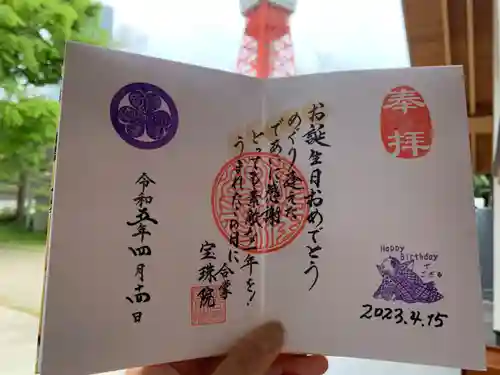 奉拝
Happy
Birthday
2023.4.15
お誕生日おめでとう
めぐり逢えた
であいに感謝
とっても素敵な一年を!
うまれたこの日に
合掌
宝珠院
令和五年四月十五日